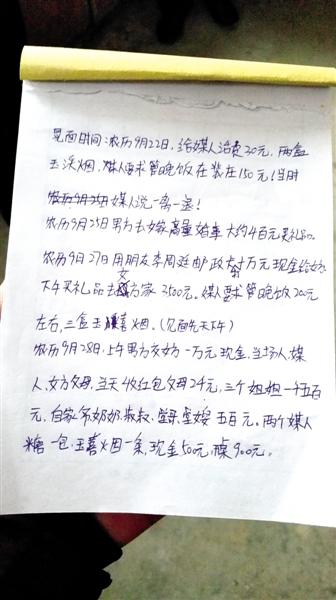 见面时间:农历9月22日,给媒人话费30元,两盒
玉溪烟,媒人要求管晚饭在 在150元(当时
农历9月25日媒人说一离一退!
农历9月25日男方去 商量婚事大约4百元买礼品。
农历9月27日用朋友李同廷邮政 十万元现金给女方
下午买礼品去女方家3500元。媒人要求管晚饭200元
左右,三盒玉溪 烟。(见面 天下午)
农历9月28日,上午男方交女方一万元现金,当场人、媒
人、女方父母,当天4收红包父母24元,三个姐姐一千五百
元,自家爷奶奶,叔叔, 五百元。两个媒人
糖一包,玉喜烟一条,现金50元, 900元。